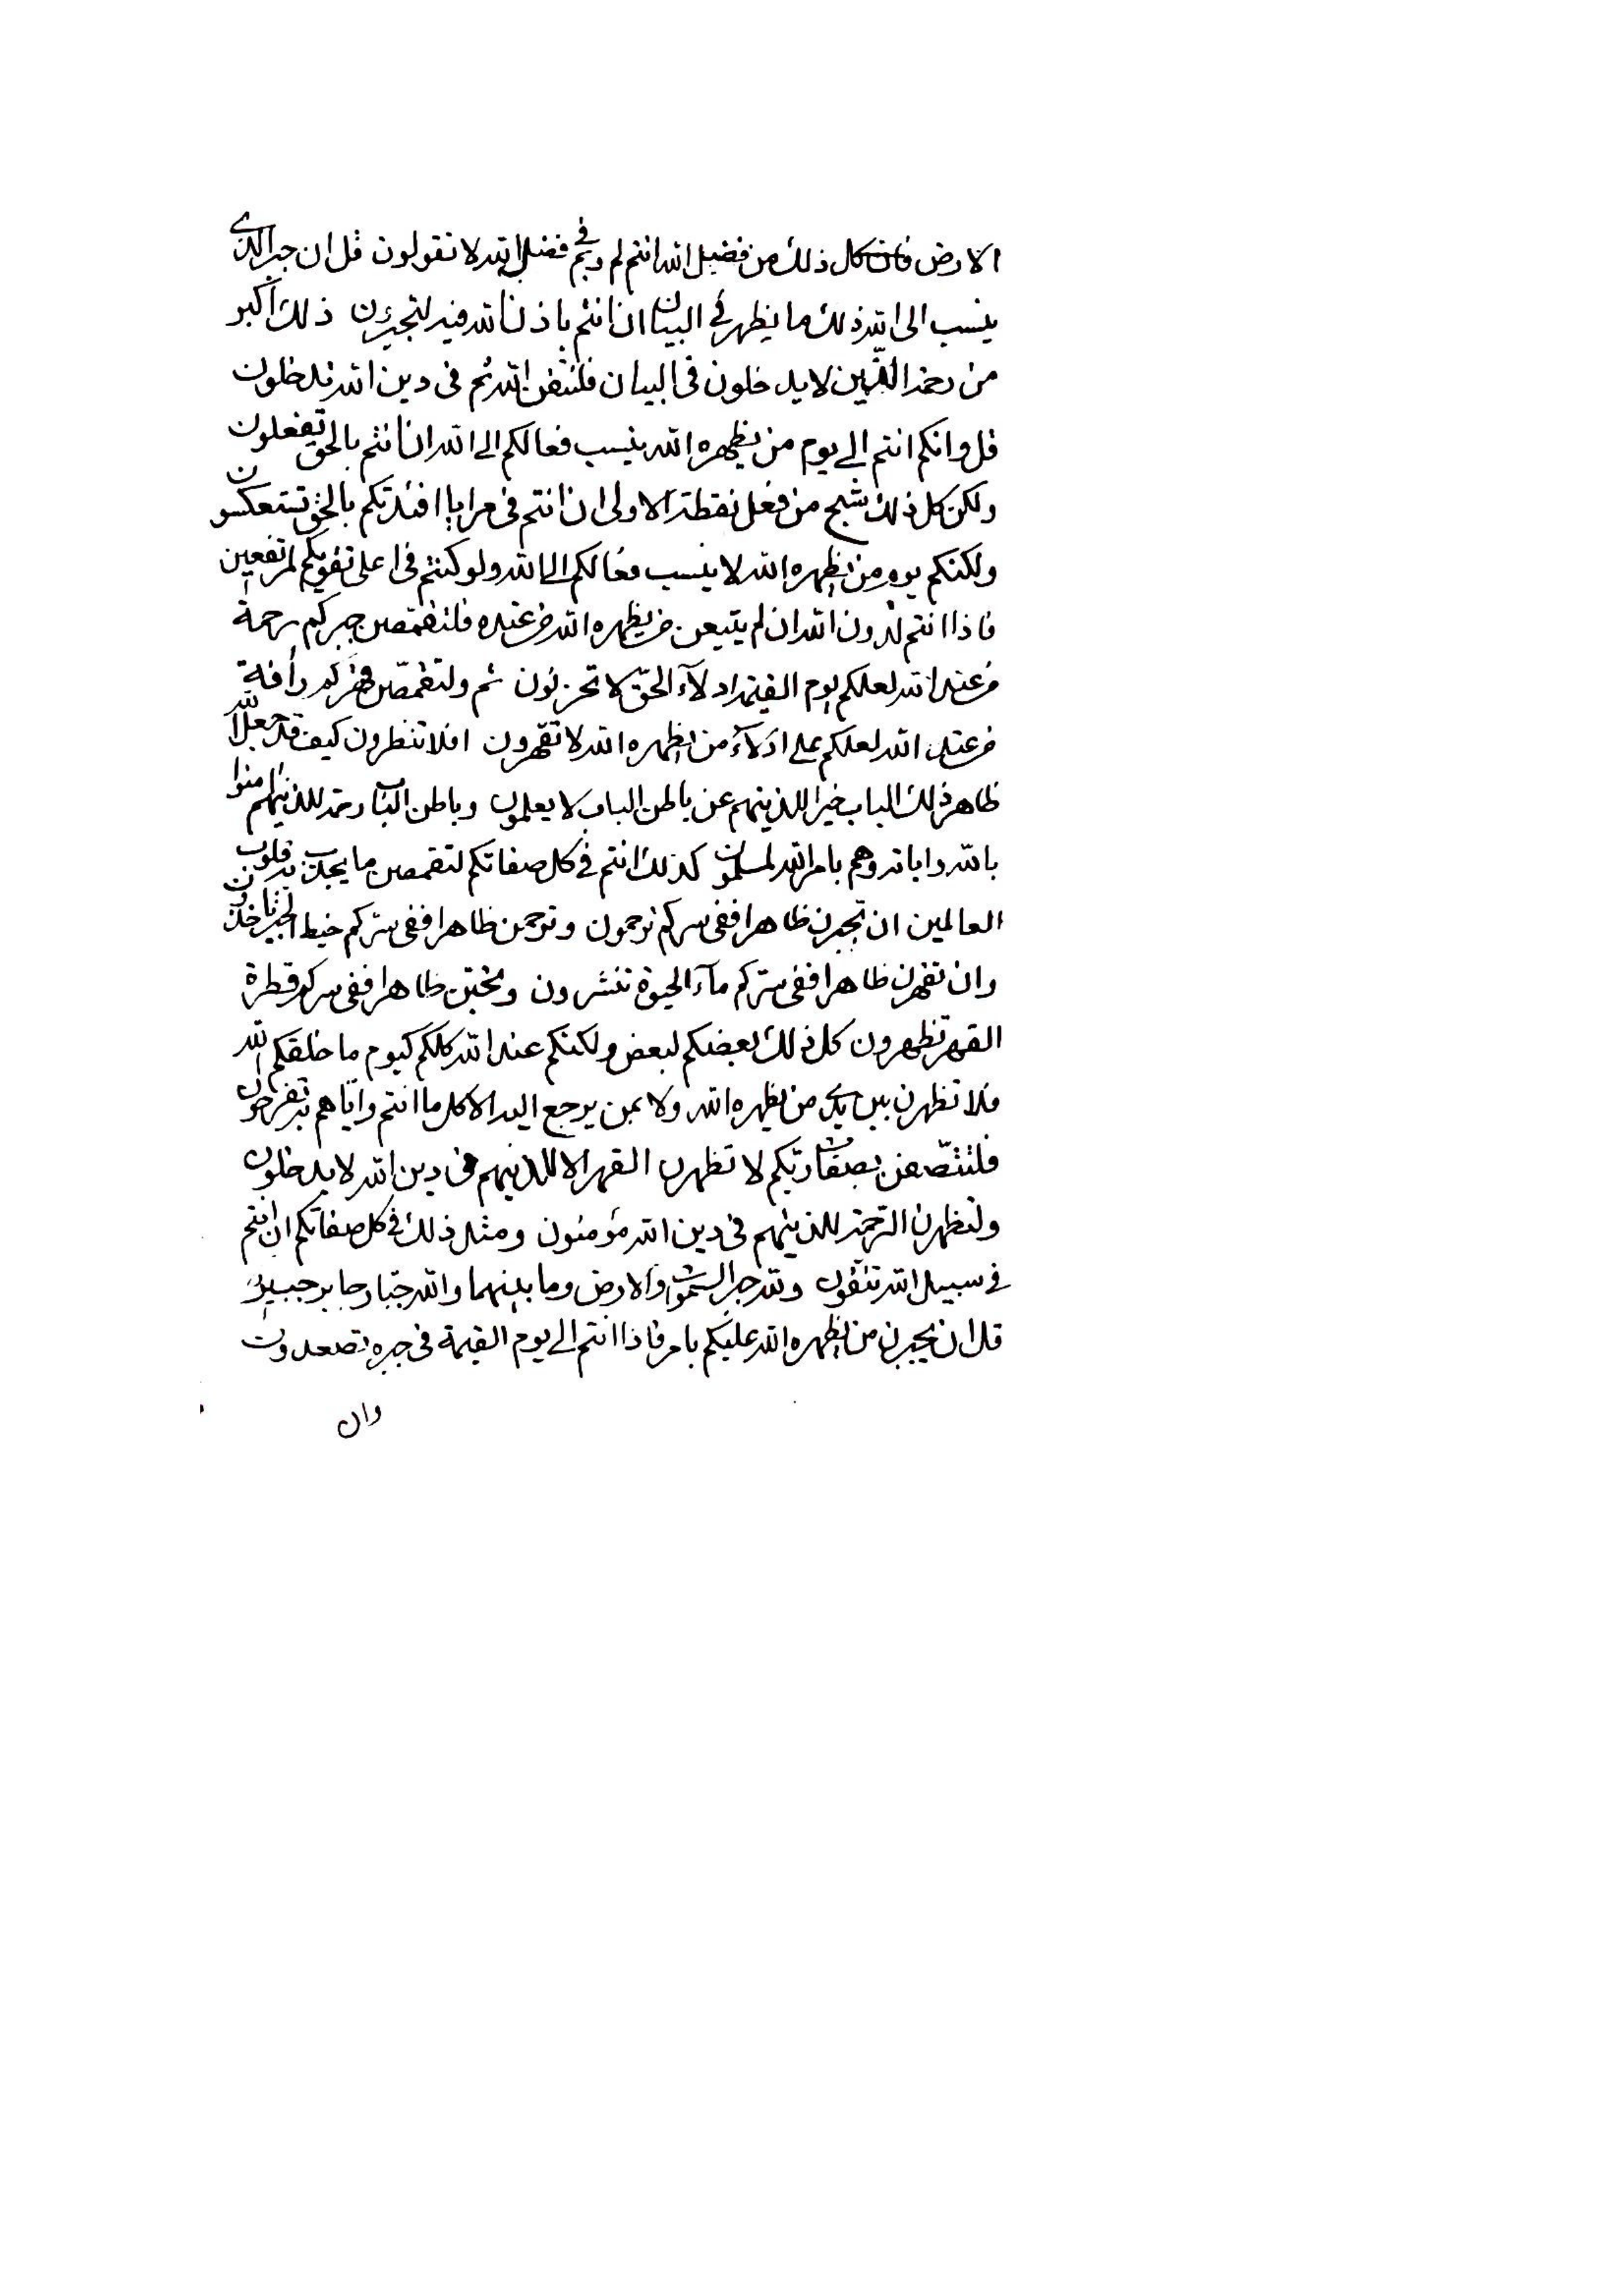 الارض فان كل ذلك من فضل الله انتم لم وبم في فضل الله لا تقولون قل ان جبر الذي
ينسب الى الله ذلك ما يظهر في البيان ان انتم باذن الله فيه لتجبرن ذلك اكبر
من رحمة الذين لا يدخلون في البيان فلتتقن الله ثم في دين الله تدخلون
قل وانكم انتم الى يوم من يظهره الله ينسب فعالكم الى الله ان انتم بالحق تفعلون
ولكن كل ذلك شبح من فعل نقطة الاولى ان انتم في مرايا افئدتكم بالحق تستعكسون
ولكنكم يوم من يظهره الله لا ينسب فعالكم الى الله ولو كنتم في اعلى تقويكم لمرتفعين
فاذا انتم لدون الله ان لم يتبعن من يظهره الله من عنده فلتقمصن جبركم رحمة
من عند الله لعلكم يوم القيمة ادلآء الحق لا تحزنون ثم ولتقمصن قهركم رأفة
من عند الله لعلكم على ادلآء من يظهره الله لا تقهرون افلا تنظرون كيف قد جعل الله
ظاهر ذلك الباب خيرا للذينهم عن باطن الباب لا يعلمون وباطن الباب رحمة للذينهم امنوا
بالله واياته وهم بامر الله لمسلمون كذلك انتم في كل صفاتكم لتقمصن ما يجذب به قلوب
العالمين ان تجبرن ظاهرا ففي سركم ترحمون وترحمن ظاهرا ففي سركم خيط الجبر تاخذون
وان تقهرن ظاهرا ففي ستركم مآء الحيوة تنشرون وتحبن ظاهرا ففي سركم قطرة
القهر تظهرون كل ذلك بعضكم لبعض ولكنكم عند الله كلكم كيوم ما خلقكم الله
فلا تظهرن بين يدي من يظهره الله ولا بمن يرجع اليه الا كل ما انتم واياهم به تفرحون
فلتتصفن بصفات ربكم لا تظهرن القهر الا للذينهم في دين الله لا يدخلون
ولتظهرن الرحمة للذينهم في دين الله مؤمنون ومثل ذلك في كل صفاتكم ان انتم
في سبيل الله تتقون ولله جبر السموات والارض وما بينهما والله جبار جابر جبير
قل ان يجبرن من يظهره الله عليكم بامر فاذا انتم الى يوم القيمة في جبره تصعدون
وان